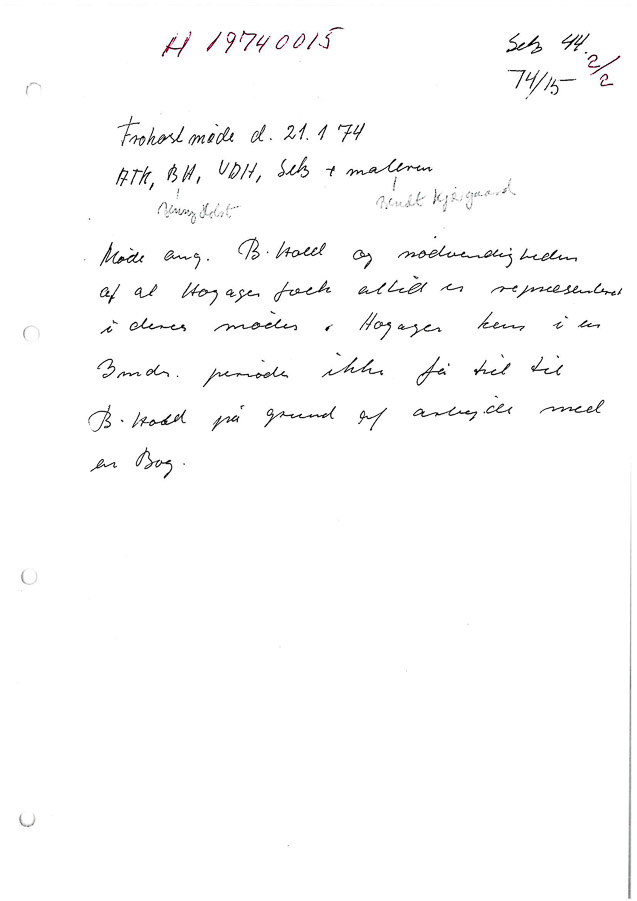 H 19740015
Seb 44.
2/2
74/15
Frokostmøde d. 21.1 74
ATK, BH, VDH, Seb + maleren
Benny Holst
Bendt Kjærgaard
Møde ang. B. Hold og nødvendigheden
af at Hogager folk altid er repræsenteret
i deres møder. Hogager kan i en
3 mdr. periode ikke få tid til
B. Hold på grund af arbejde med
en Bog.